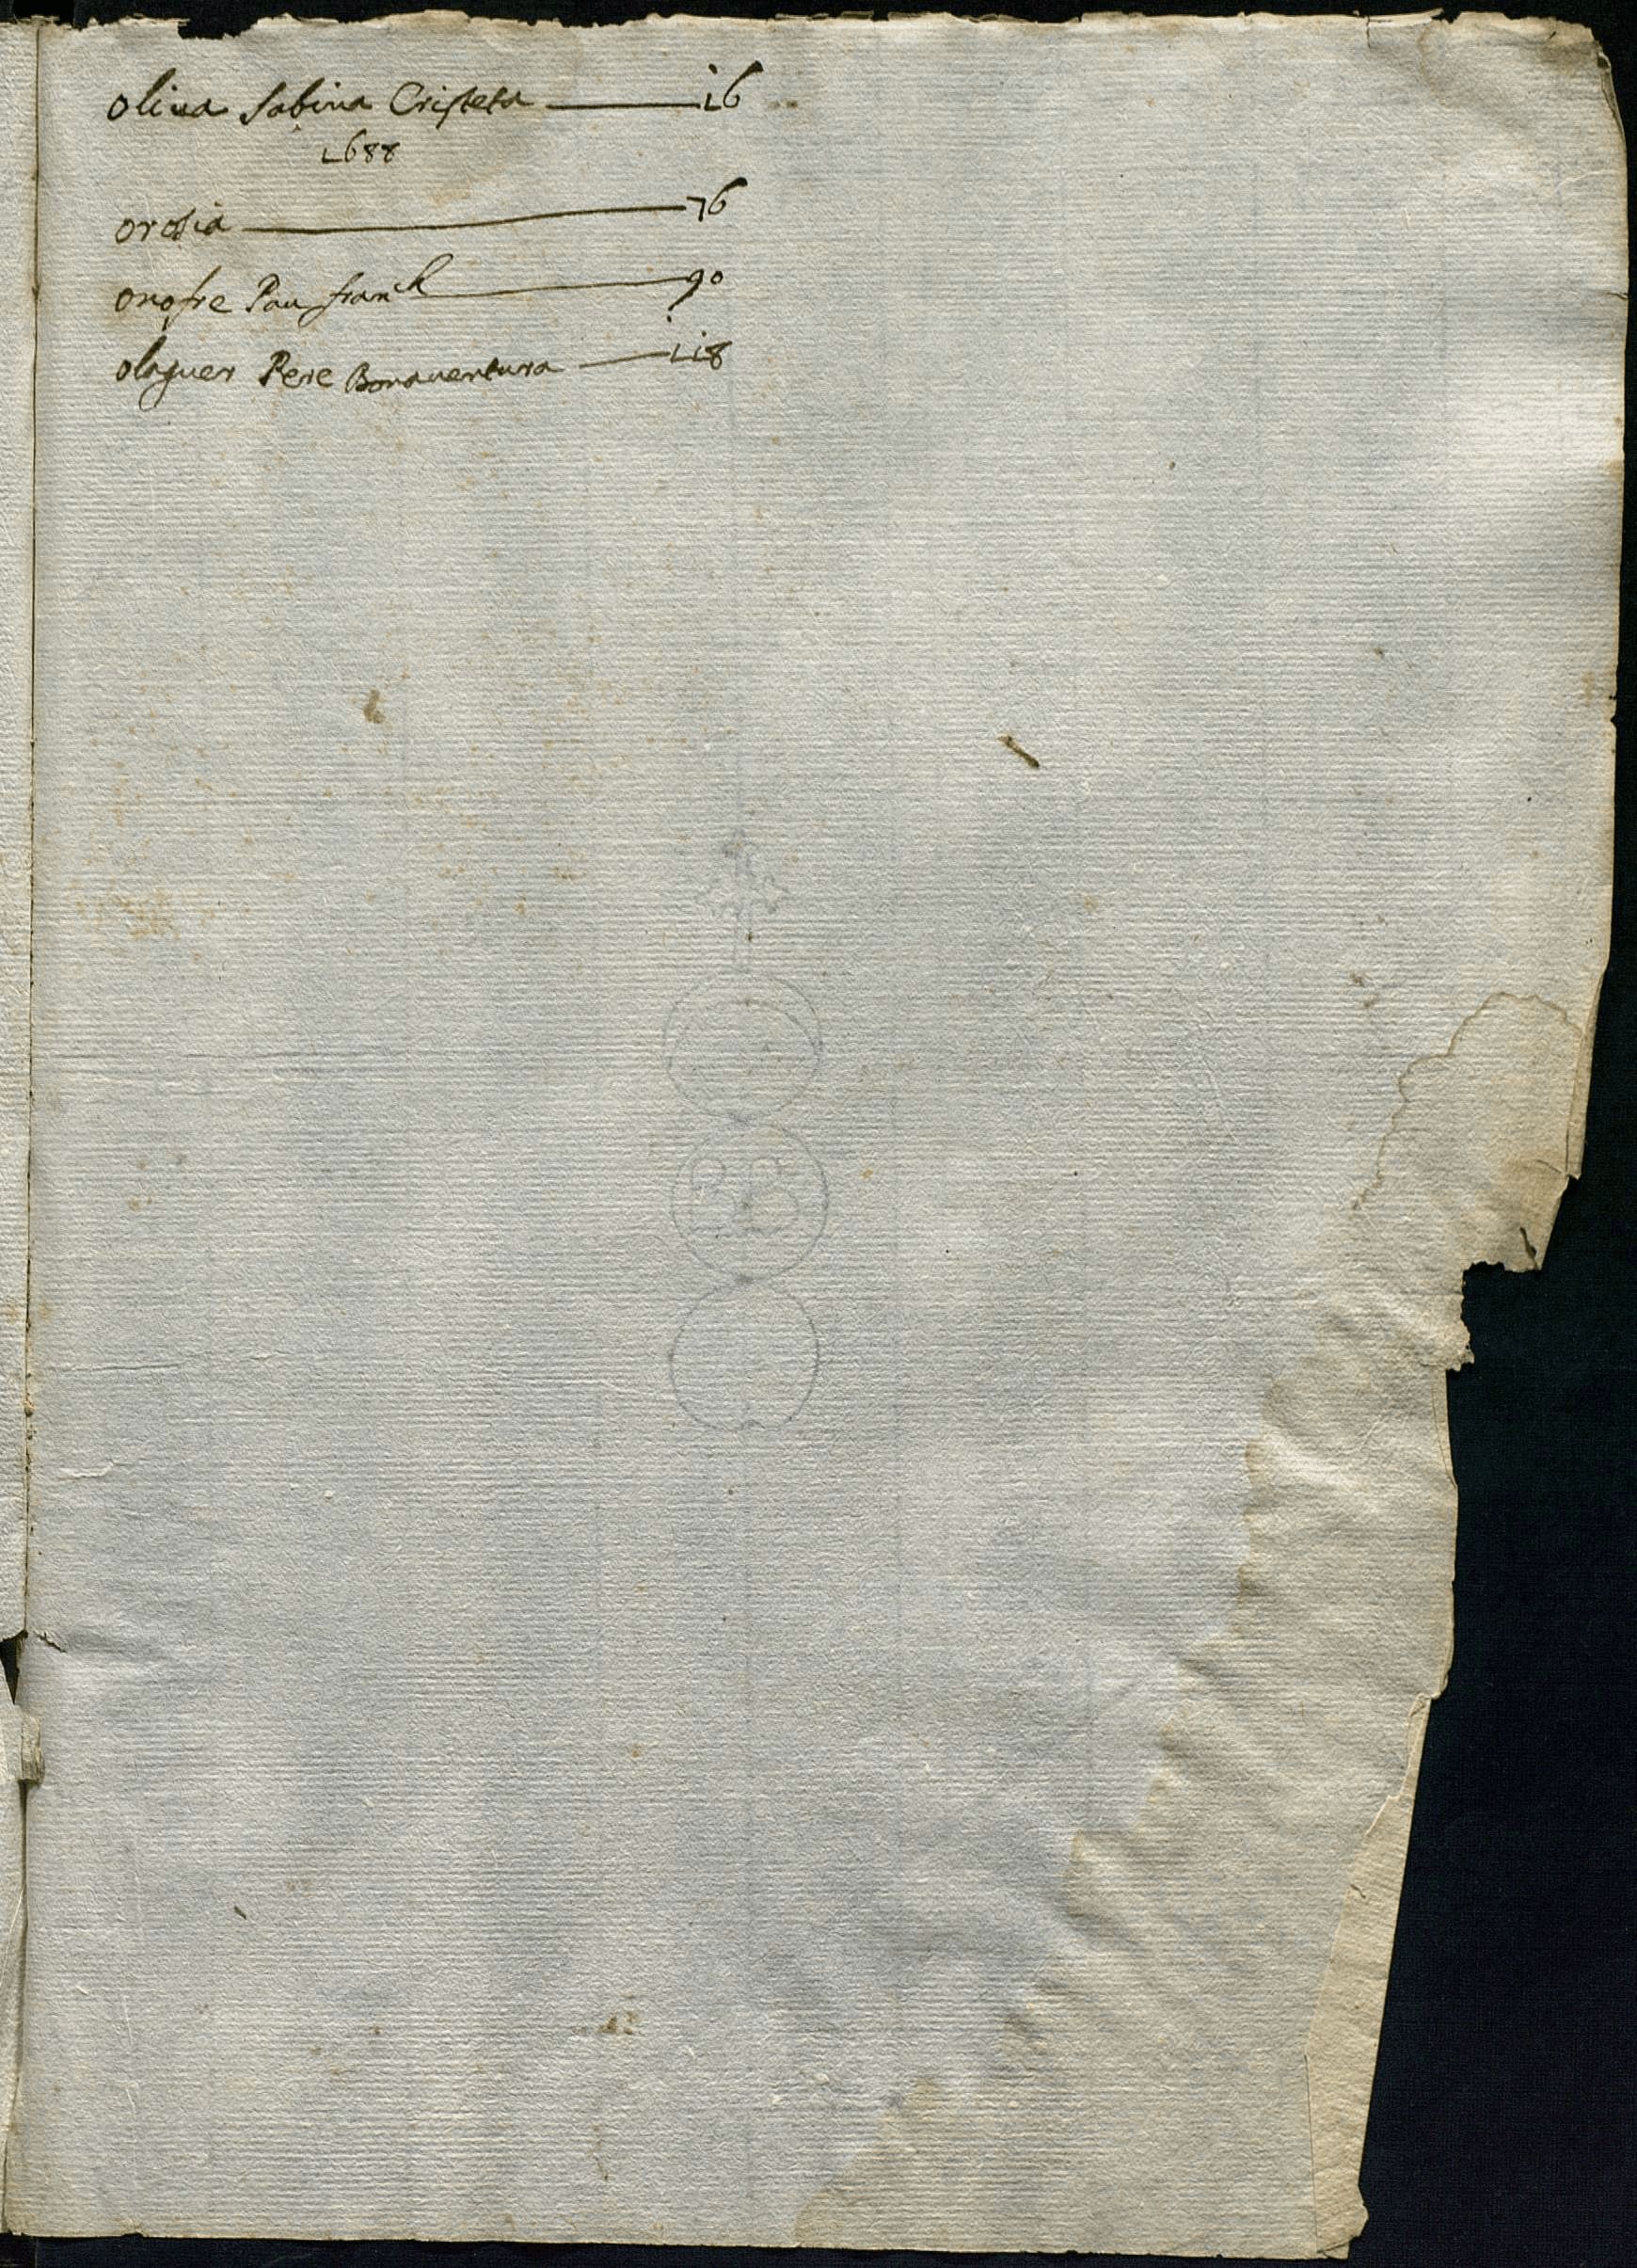 oliva Sabina Cristeta — 16
1688
orosia — 76
onofre Pau franch — 90
olaguer Pere Bonaventura — 118